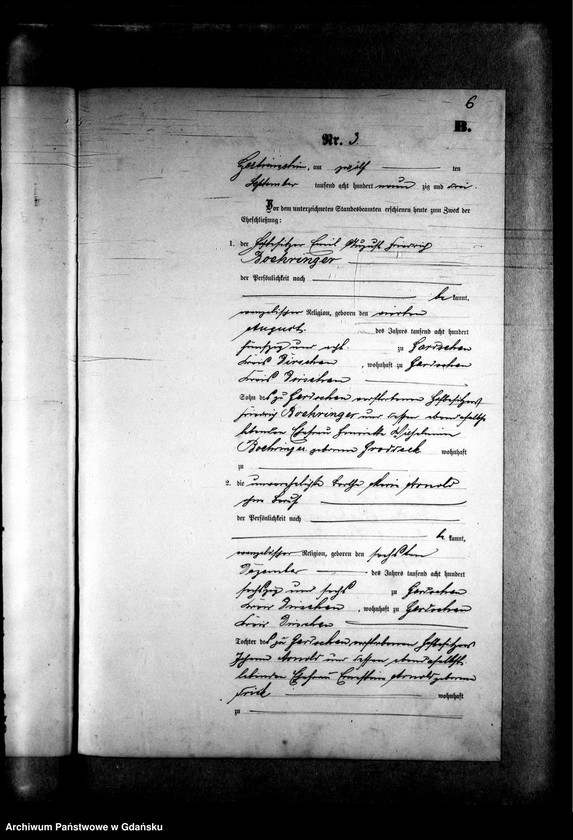 6
B.
Nr. 3.
am zwölf ten
September tausend acht hundert neun zig und drei.
Vor dem unterzeichneten Standesbeamten erschienen heute zum Zweck der
Eheschließung:
1. der Hofbesitzer Emil August Friedrich
Boehringer
der Persönlichkeit nach
be kannt,
evangelischer Religion, geboren den vierten
August des Jahres tausend acht hundert
fünfzig und acht zu
Kreis Dirschau, wohnhaft zu
Kreis Dirschau
Sohn des zu verstorbenen Hofbesitzers
Friedrich Boehringer und dessen ebendaselbst
lebenden Ehefrau Henriette Wilhelmine
Boehringer geborene wohnhaft
zu
2. die unverehelichte Bertha Marie Arnold
ohne Beruf
der Persönlichkeit nach
be kannt,
evangelischer Religion, geboren den sechsten
Dezember des Jahres tausend acht hundert
sechszig und sechs zu
Kreis Dirschau, wohnhaft zu
Kreis Dirschau
Tochter des zu verstorbenen Hofbesitzers
Johann Arnold und dessen ebendaselbst
lebenden Ehefrau Arnold geborene
wohnhaft
zu
Archiwum Państwowe w Gdańsku